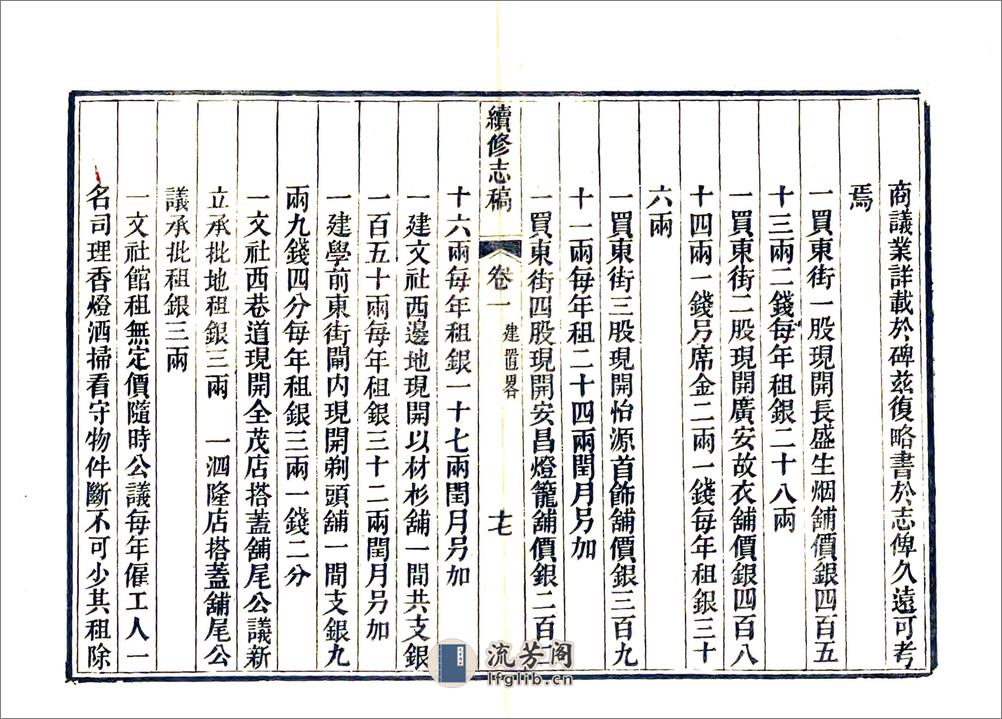 商議業詳載於碑茲復略書於志俾久遠可考
焉
一買東街一股現開長盛生烟舖價銀四百五
十三兩二錢每年租銀二十八兩
一買東街二股現開廣安故衣舖價銀四百八
十四兩一錢另席金二兩一錢每年租銀三十
六兩
一買東街三股現開怡源首飾舖價銀三百九
十一兩每年租二十四兩閏月另加
一買東街四股現開安昌燈籠舖價銀二百二
續修志稿 卷一 建置畧 十七
十六兩每年租銀一十七兩閏月另加
一建文社西邊地現開以材杉舖一間共支銀
一百五十兩每年租銀三十二兩閏月另加
一建學前東街閘內現開剃頭舖一間支銀九
兩九錢四分每年租銀三兩一錢二分
一文社西巷道現開全茂店搭蓋舖尾公議新
立承批地租銀三兩 一泗隆店搭蓋舖尾公
議承批租銀三兩
一文社館租無定價隨時公議每年僱工人一
名司理香燈洒掃看守物件斷不可少其租除
流芳阁
lfglib.cn